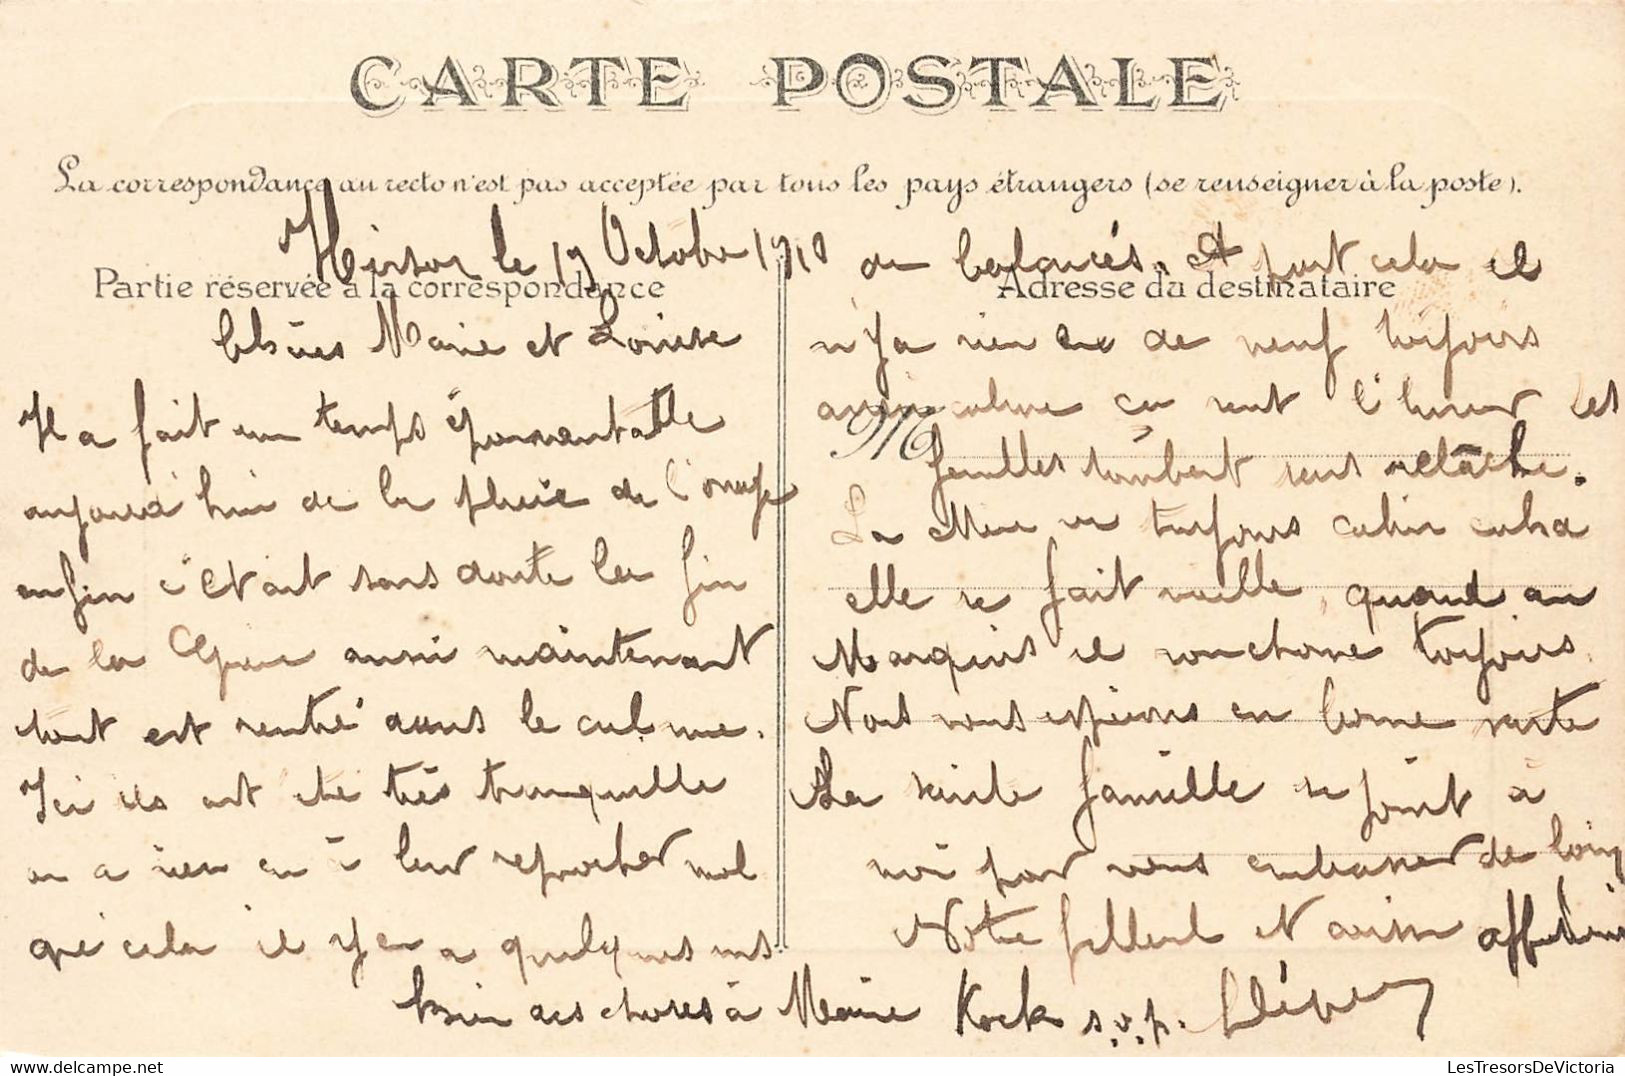 CARTE POSTALE
La correspondance au recto n'est pas acceptée par tous les pays étrangers (se renseigner à la poste).
Hirson le 19 Octobre 1910
Partie réservée à la correspondance
Chères Marie et Louise
Il a fait un temps épouvantable
aujourd'hui de la pluie de l'orage
enfin c'était sans doute la fin
de la Grève aussi maintenant
tout est rentré dans le calme.
Ici ils ont été très tranquille
on a rien eu à leur reprocher mal
gré cela il y en a quelques uns
de balancés. A part cela il
Adresse du destinataire
n'y a rien de neuf toujours
ça sent l'hiver les
M
feuilles tombent sans relâche.
La Mère va toujours cahin caha
elle se fait vieille, quand au
Marquis il ronchonne toujours.
Nous vous espérons en bonne santé
La sainte famille se joint à
moi pour vous embrasser de loin
Notre filleul et aussi
Bien des choses à Marie Kock s.v.p.
LesTresorsDeVictoria